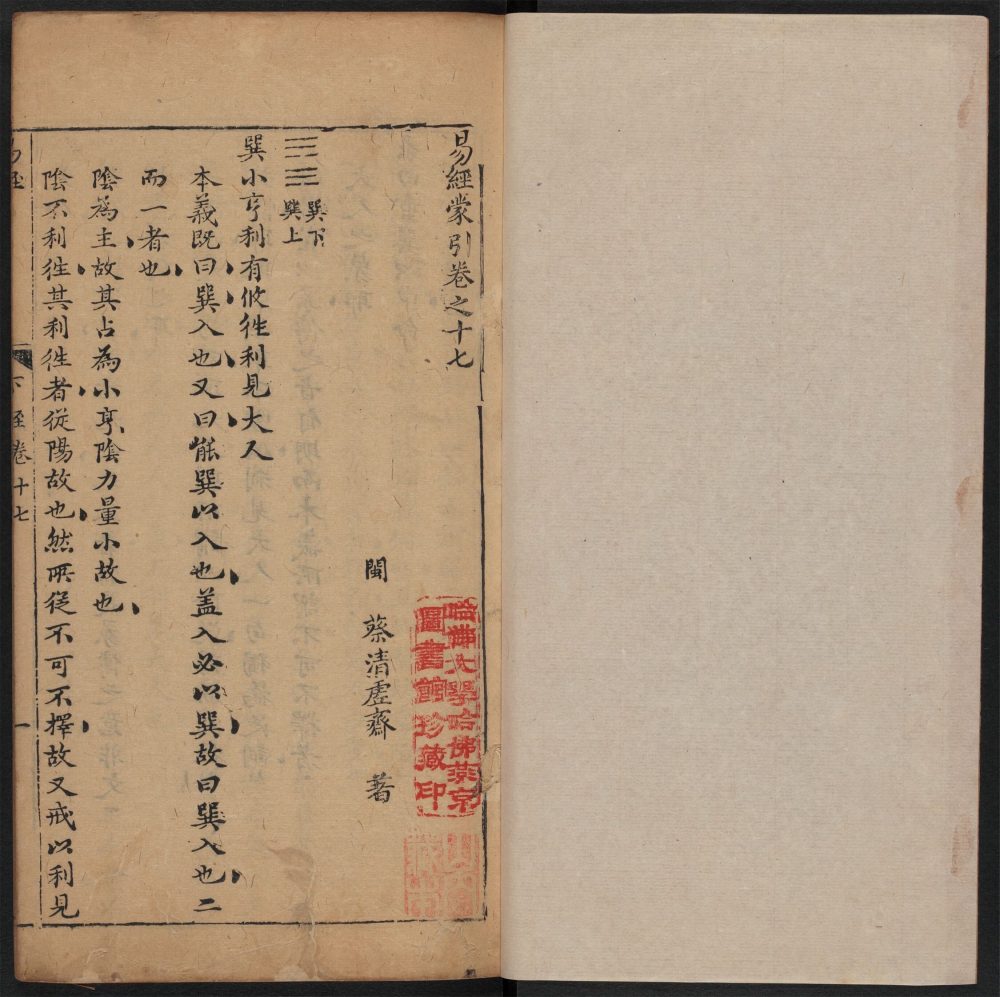 易經蒙引卷之十七
閩 蔡清虛齋 著
哈佛大學哈佛燕京
圖書館珍藏印
巽下
巽上
巽小亨利有攸徃利見大人
本義既曰巽入也又曰能巽以入也盖入必以巽故曰巽入也二
而一者也
陰為主故其占為小亨陰力量小故也
陰不利徃其利徃者從陽故也然所從不可不擇故又戒以利見
下經卷十七 一